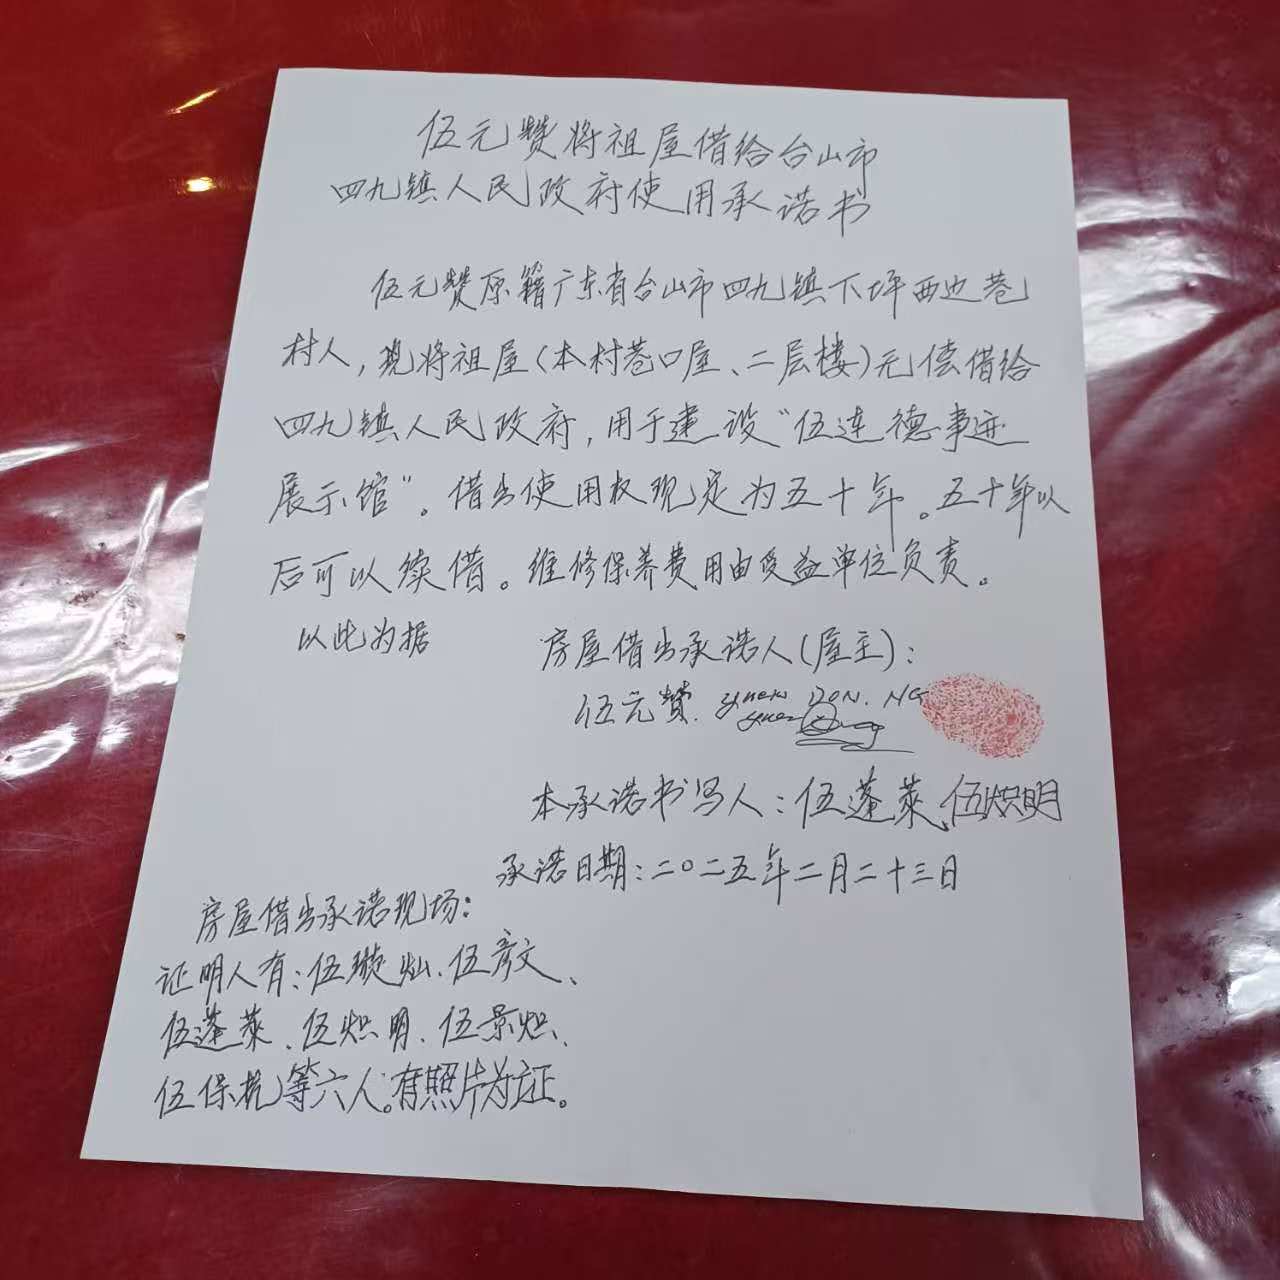 伍元赞将祖屋借给台山市
四九镇人民政府使用承诺书
伍元赞原籍广东省台山市四九镇下坪西边巷
村人，现将祖屋（本村巷口屋、二层楼）无偿借给
四九镇人民政府，用于建设“伍连德事迹
展示馆”。借出使用权现定为五十年。五十年以
后可以续借。维修保养费用由受益单位负责。
以此为据
房屋借出承诺人（屋主）：
伍元赞. Yuen DON. NG
本承诺书写人：伍蓬莱、伍炽明
承诺日期：二〇二五年二月二十三日
房屋借出承诺现场：
证明人有：伍璇灿、伍彦文、
伍蓬莱、伍炽明、伍景炽、
伍保杭等六人。有照片为证。